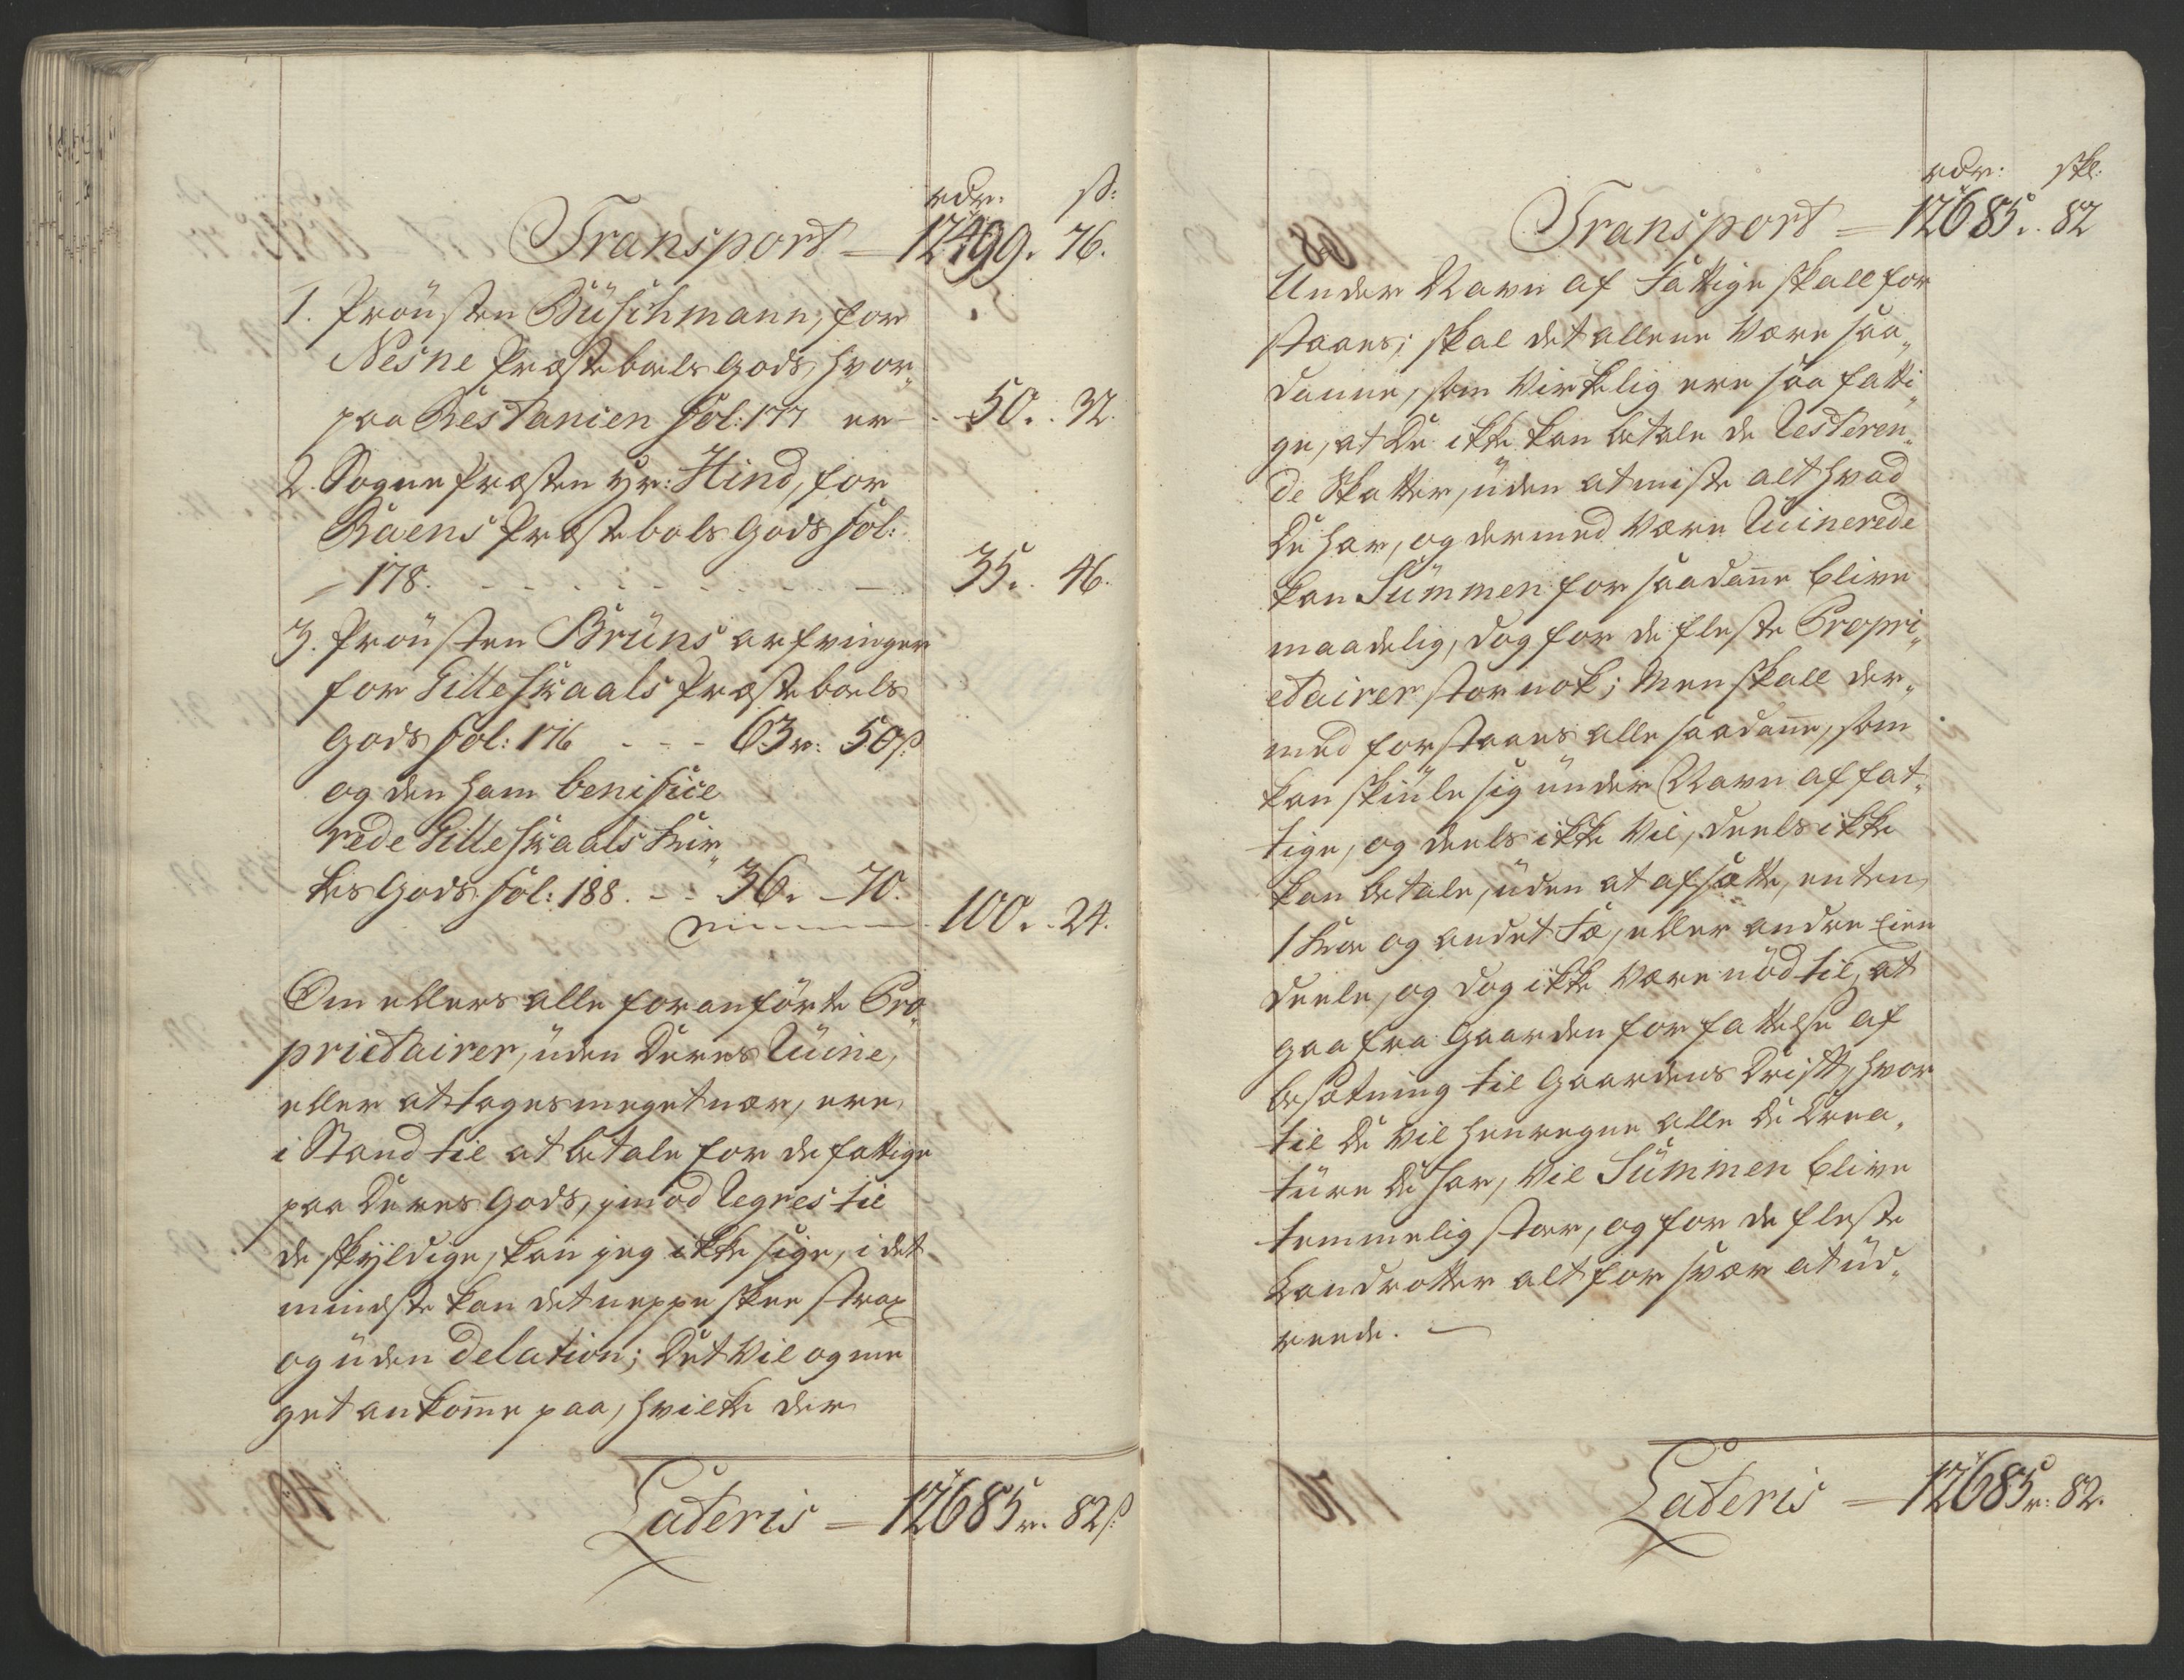 rdr. ß:
Transport = 12499. 76.
1. Prousten Buschmann, for
Nesne Præsteboels Gods, hvor„
paa Restancien fol: 177 er - 50. 32.
2. Sogne Præsten Hr: Hind, for
Raens Præstebols Gods fol:
178. - - - - - - - - 35. 46.
3. Prousten Bruns arfvinger
for Gilleskaals Præsteboels
Gods fol: 176 - - - 63 r: 50 ß:
og den ham benificе
rede Gilleskaals Kir„
kes Gods fol: 188. - - 36. - 70.
100. 24.
Om ellers alle foranførte Pro„
prietairer, uden Deres Ruine,
eller at tages meget nær, ere
i Stand til at betale for de fattige
paa Deres Gods, imod Regres til
de skyldige, kan jeg ikke sige, i det
mindste kan det neppe skee strax
og uden Delation; Det vil og me
get ankom̅e paa, hvilke der
Lateris = 12685 r. 82 ß:
rdr: skl:
Transport = 12685. 82
Under Navn af Fattige skall for
staaes; skal det allene være saa„
danne, som virkelig ere saa fatti„
ge, at De ikke kan betale de Resteren„
de Skatter, uden at miste alt hvad
De har, og dermed være Ruinerede
kan Summen for saadan̅e blive
maadelig, dog for de fleste Propri„
etairer stor nok; Men skall der„
med forstaaes alle saadan̅e, som
kan skiule sig under Navn af fat„
tige, og deels ikke vil, deels ikke
kan betale, uden at afsætte, enten
1 Koe og andet Fæ, eller andre Eien
deele, og dog ikke være nød til, at
gaa fra Gaarden for fattelse af
besætning til Gaardens Drift, hvor
til De vil henregne alle de Crea„
ture De har, vil Summen blive
temmelig stor, og for de fleste
Landrotter alt for svær at ud„
reede.
Lateris = 12685 r: 82.